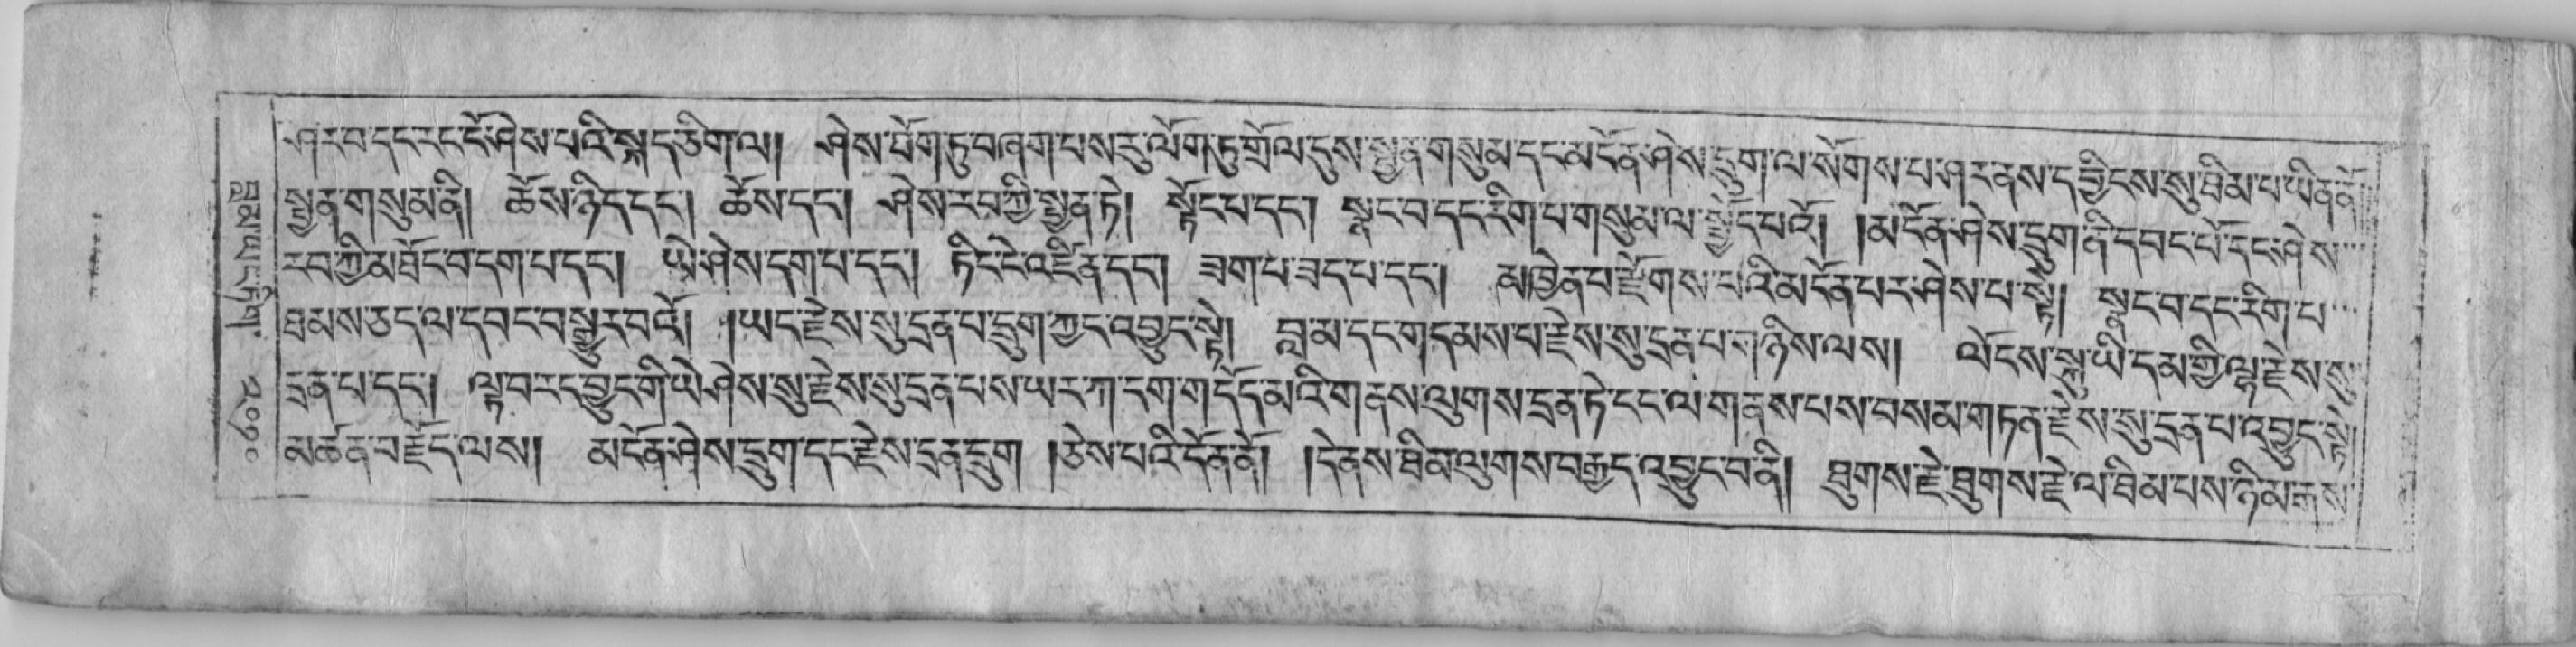 ཤར་བ་དང་རང་ངོ་ཤེས་པའི་སྐད་ཅིག་ལ། ཤེས་པོག་ཏུ་བཞག་པས་རུ་ལོག་ཏུ་གྲོལ་དུས་སྤྱན་གསུམ་དང་མངོན་ཤེས་དྲུག་ལ་སོགས་པ་ཤར་ནས་དབྱིངས་སུ་ཐིམ་པ་ཡིན་ནོ།
སྤྱན་གསུམ་ནི། ཆོས་ཉིད་དང་། ཆོས་དང་། ཤེས་རབ་ཀྱི་སྤྱན་ཏེ། སྟོང་པ་དང་། སྣང་བ་དང་རིག་པ་གསུམ་ལ་སྤྱོད་པའོ། །མངོན་ཤེས་དྲུག་ནི་དབང་པོ་དང་ཤེས་
རབ་ཀྱི་མཐོང་བ་དག་པ་དང་། ཡེ་ཤེས་དག་པ་དང་། ཏིང་ངེ་འཛིན་དང་། ཟག་པ་ཟད་པ་དང་། མཁྱེན་པ་རྫོགས་པའི་མངོན་པར་ཤེས་པ་སྟེ། སྣང་བ་དང་རིག་པ་
ཐམས་ཅད་ལ་དབང་བསྒྱུར་བའོ། །ཡང་རྗེས་སུ་དྲན་པ་དྲུག་ཀྱང་འབྱུང་སྟེ། བླ་མ་དང་གདམས་པ་རྗེས་སུ་དྲན་པ་གཉིས་ལས། ལོངས་སྐུ་ཡི་དམ་གྱི་ལྷ་རྗེས་སུ་
དྲན་པ་དང་། ལྟ་བ་རང་བྱུང་གི་ཡེ་ཤེས་སུ་རྗེས་སུ་དྲན་པས་ཡར་ཀ་དག་གདོད་མའི་གནས་ལུགས་དྲན་ཏེ་ངང་ལ་གནས་པས་བསམ་གཏན་རྗེས་སུ་དྲན་པ་འབྱུང་སྟེ།
མཚན་བརྗོད་ལས། མངོན་ཤེས་དྲུག་དང་རྗེས་དྲན་དྲུག །ཅེས་པའི་དོན་ནོ། །དེ་ནས་ཐིམ་ལུགས་བརྒྱད་འབྱུང་བ་ནི། ཐུགས་རྗེ་ཐུགས་རྗེ་ལ་ཐིམ་པས་ཉི་མ་རྒས་